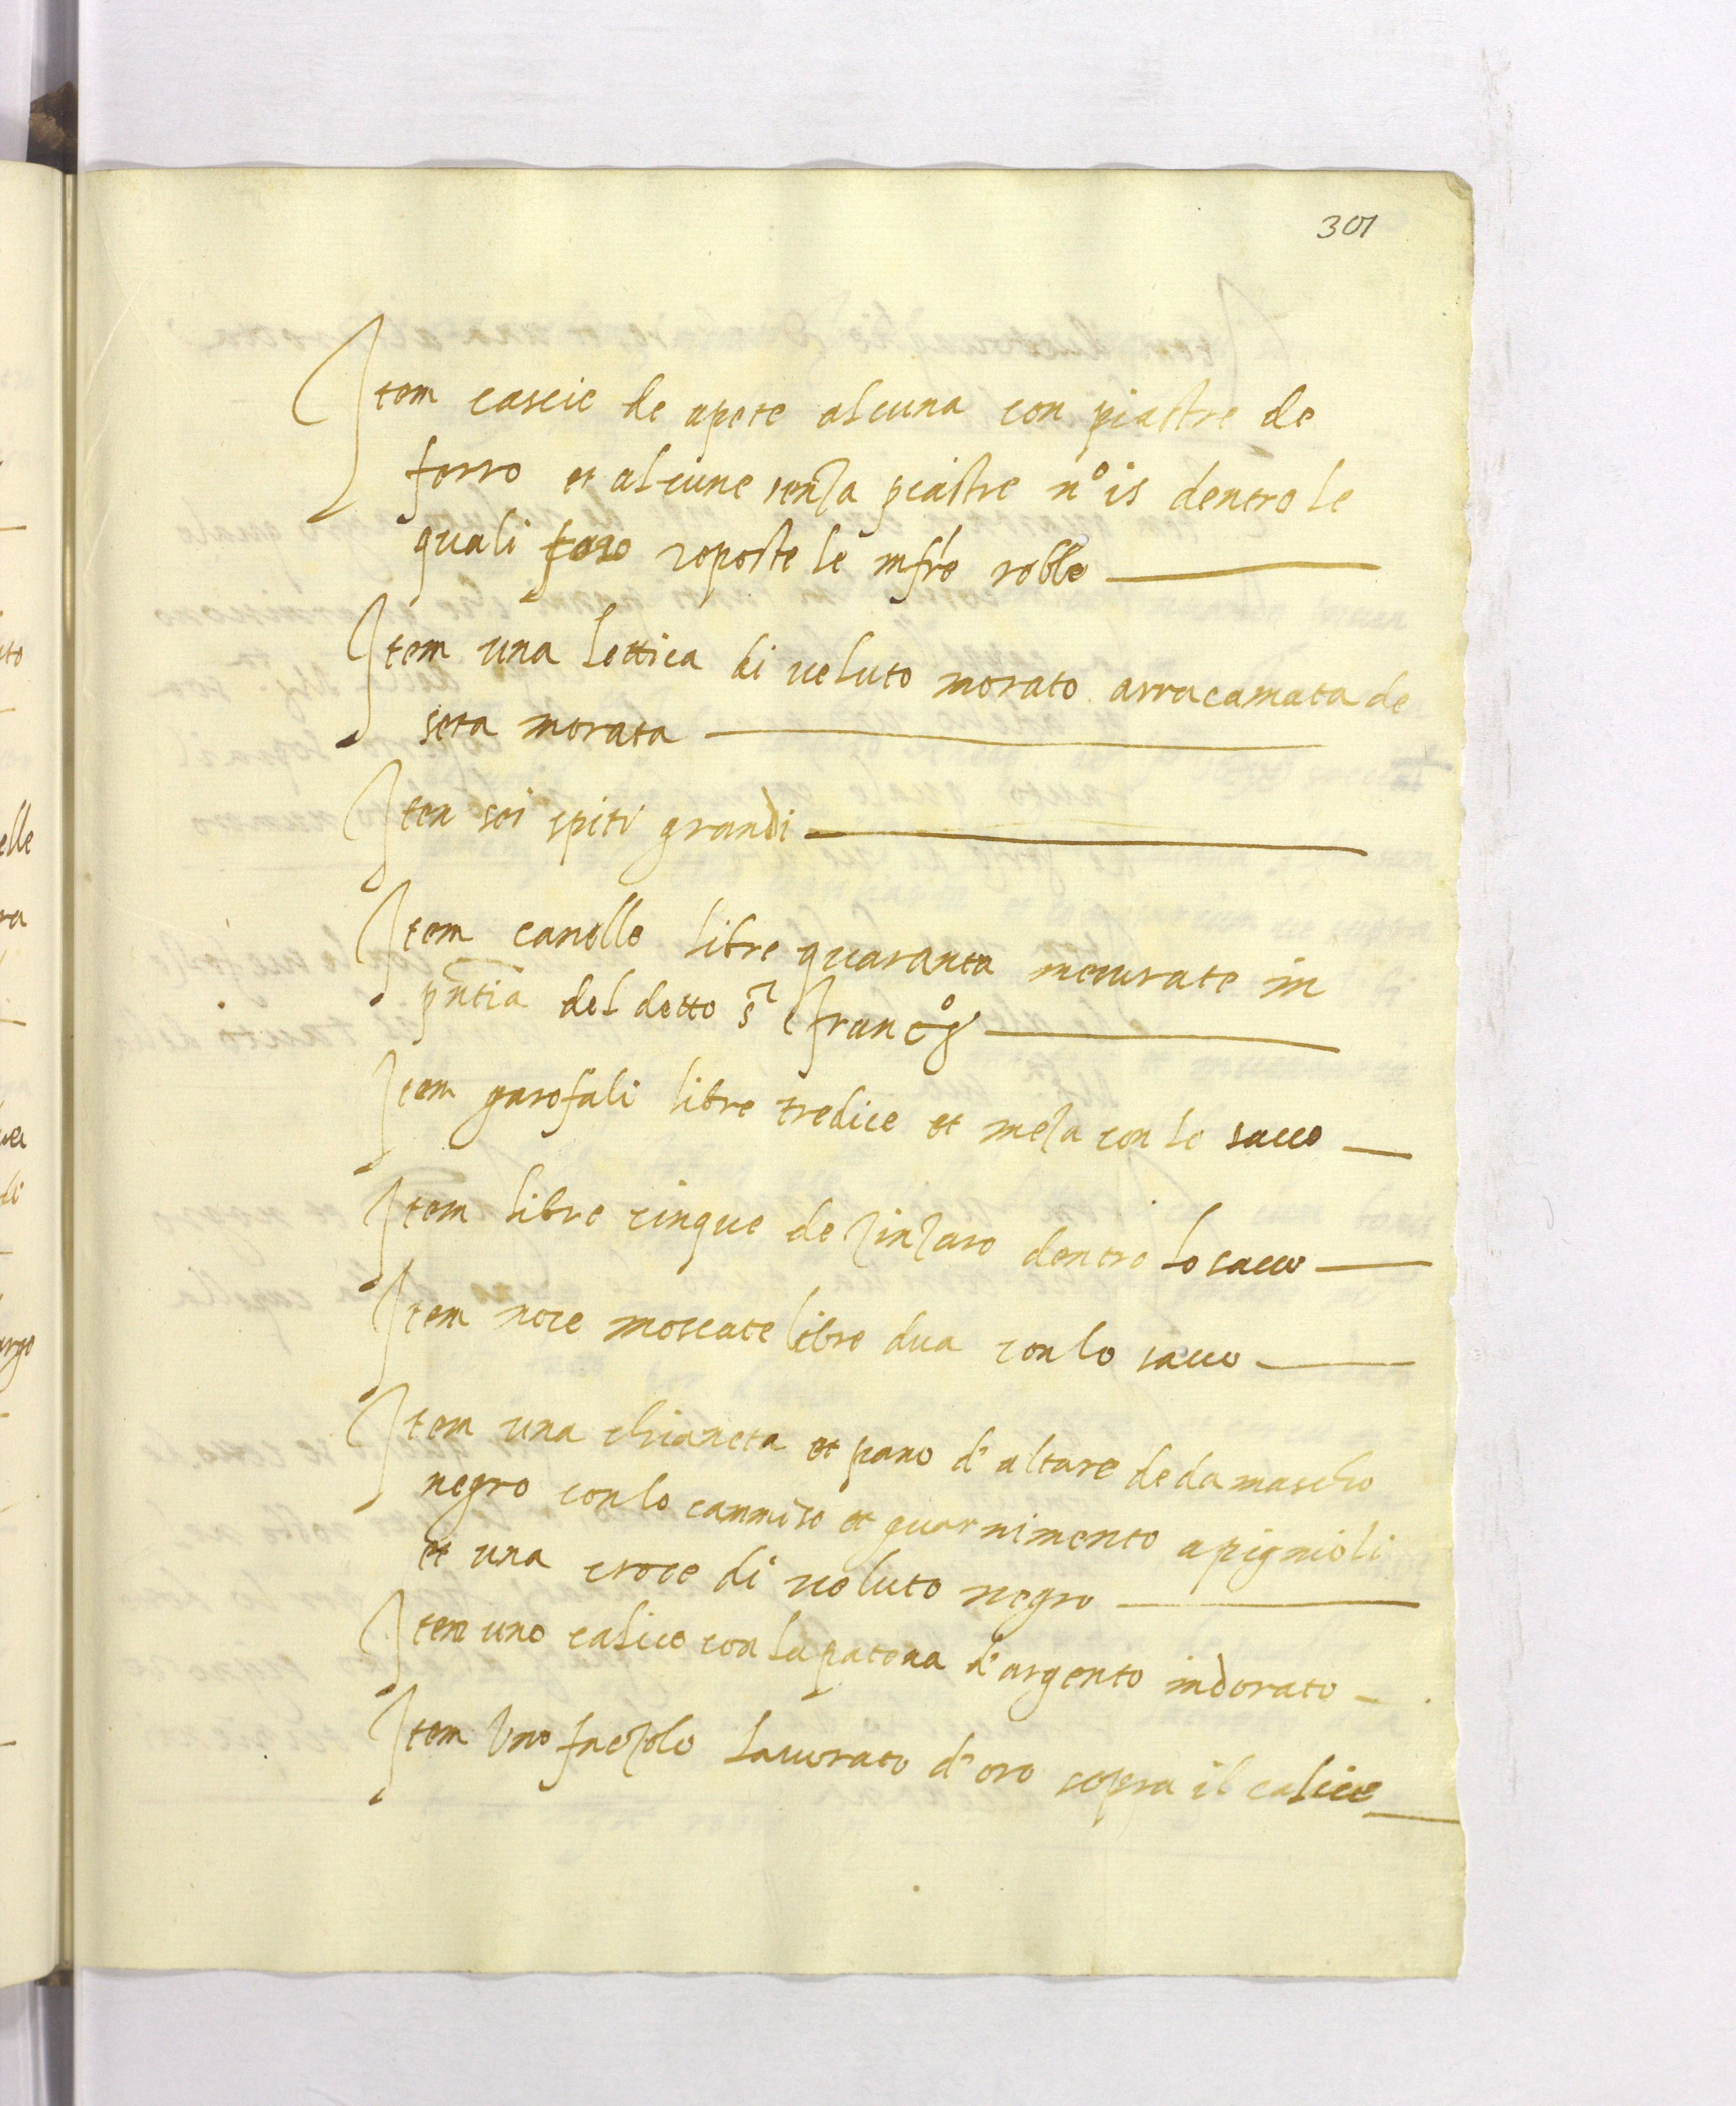 301
Item cascie de apete alcuna con piastre de
ferro et alcune senza piastre n.º 15 dentro le
quali foro reposte le infre robbe
Item una lettica di veluto morato arracamata de
seta morata
Iten sei spiti grandi
Item canelle libre quaranta mesurate in
pntia del detto sr Franco
Item garofali libre tredice et meza con lo sacco
Item libre cinque de zinzaro dentro lo sacco
Item noce moscate libre dua con lo sacco
Item una chianeta et pano d'altare de damascho
negro con lo cammiso et guarnimento a pignioli
et una croce di veluto negro
Item uno calice con la patena d'argento indorato
Item Uno faczolo lavorato d'oro sopra il calice